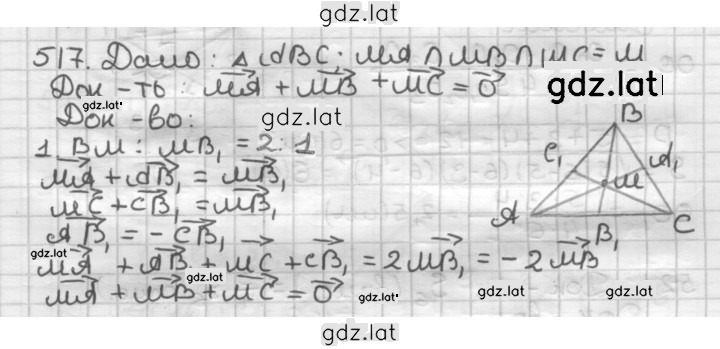 gdz.lat
517. Дано: △ ABC; MA ∩ MB ∩ MC = M
Док-ть: \vec{MA} + \vec{MB} + \vec{MC} = \vec{0}
gdz.lat
gdz.lat
gdz.lat
Док-во:
1. BM : MB₁ = 2:1
\vec{MA} + \vec{AB₁} = \vec{MB₁}
\vec{MC} + \vec{CB₁} = \vec{MB₁}
\vec{AB₁} = - \vec{CB₁}
gdz.lat
\vec{MA} + \vec{AB₁} + \vec{MC} + \vec{CB₁} = 2\vec{MB₁} = - 2\vec{MB}
gdz.lat
\vec{MA} + \vec{MB} + \vec{MC} = \vec{0}
gdz.lat
gdz.lat
gdz.lat
gdz.lat
B
C₁
A₁
M
A
B₁
C